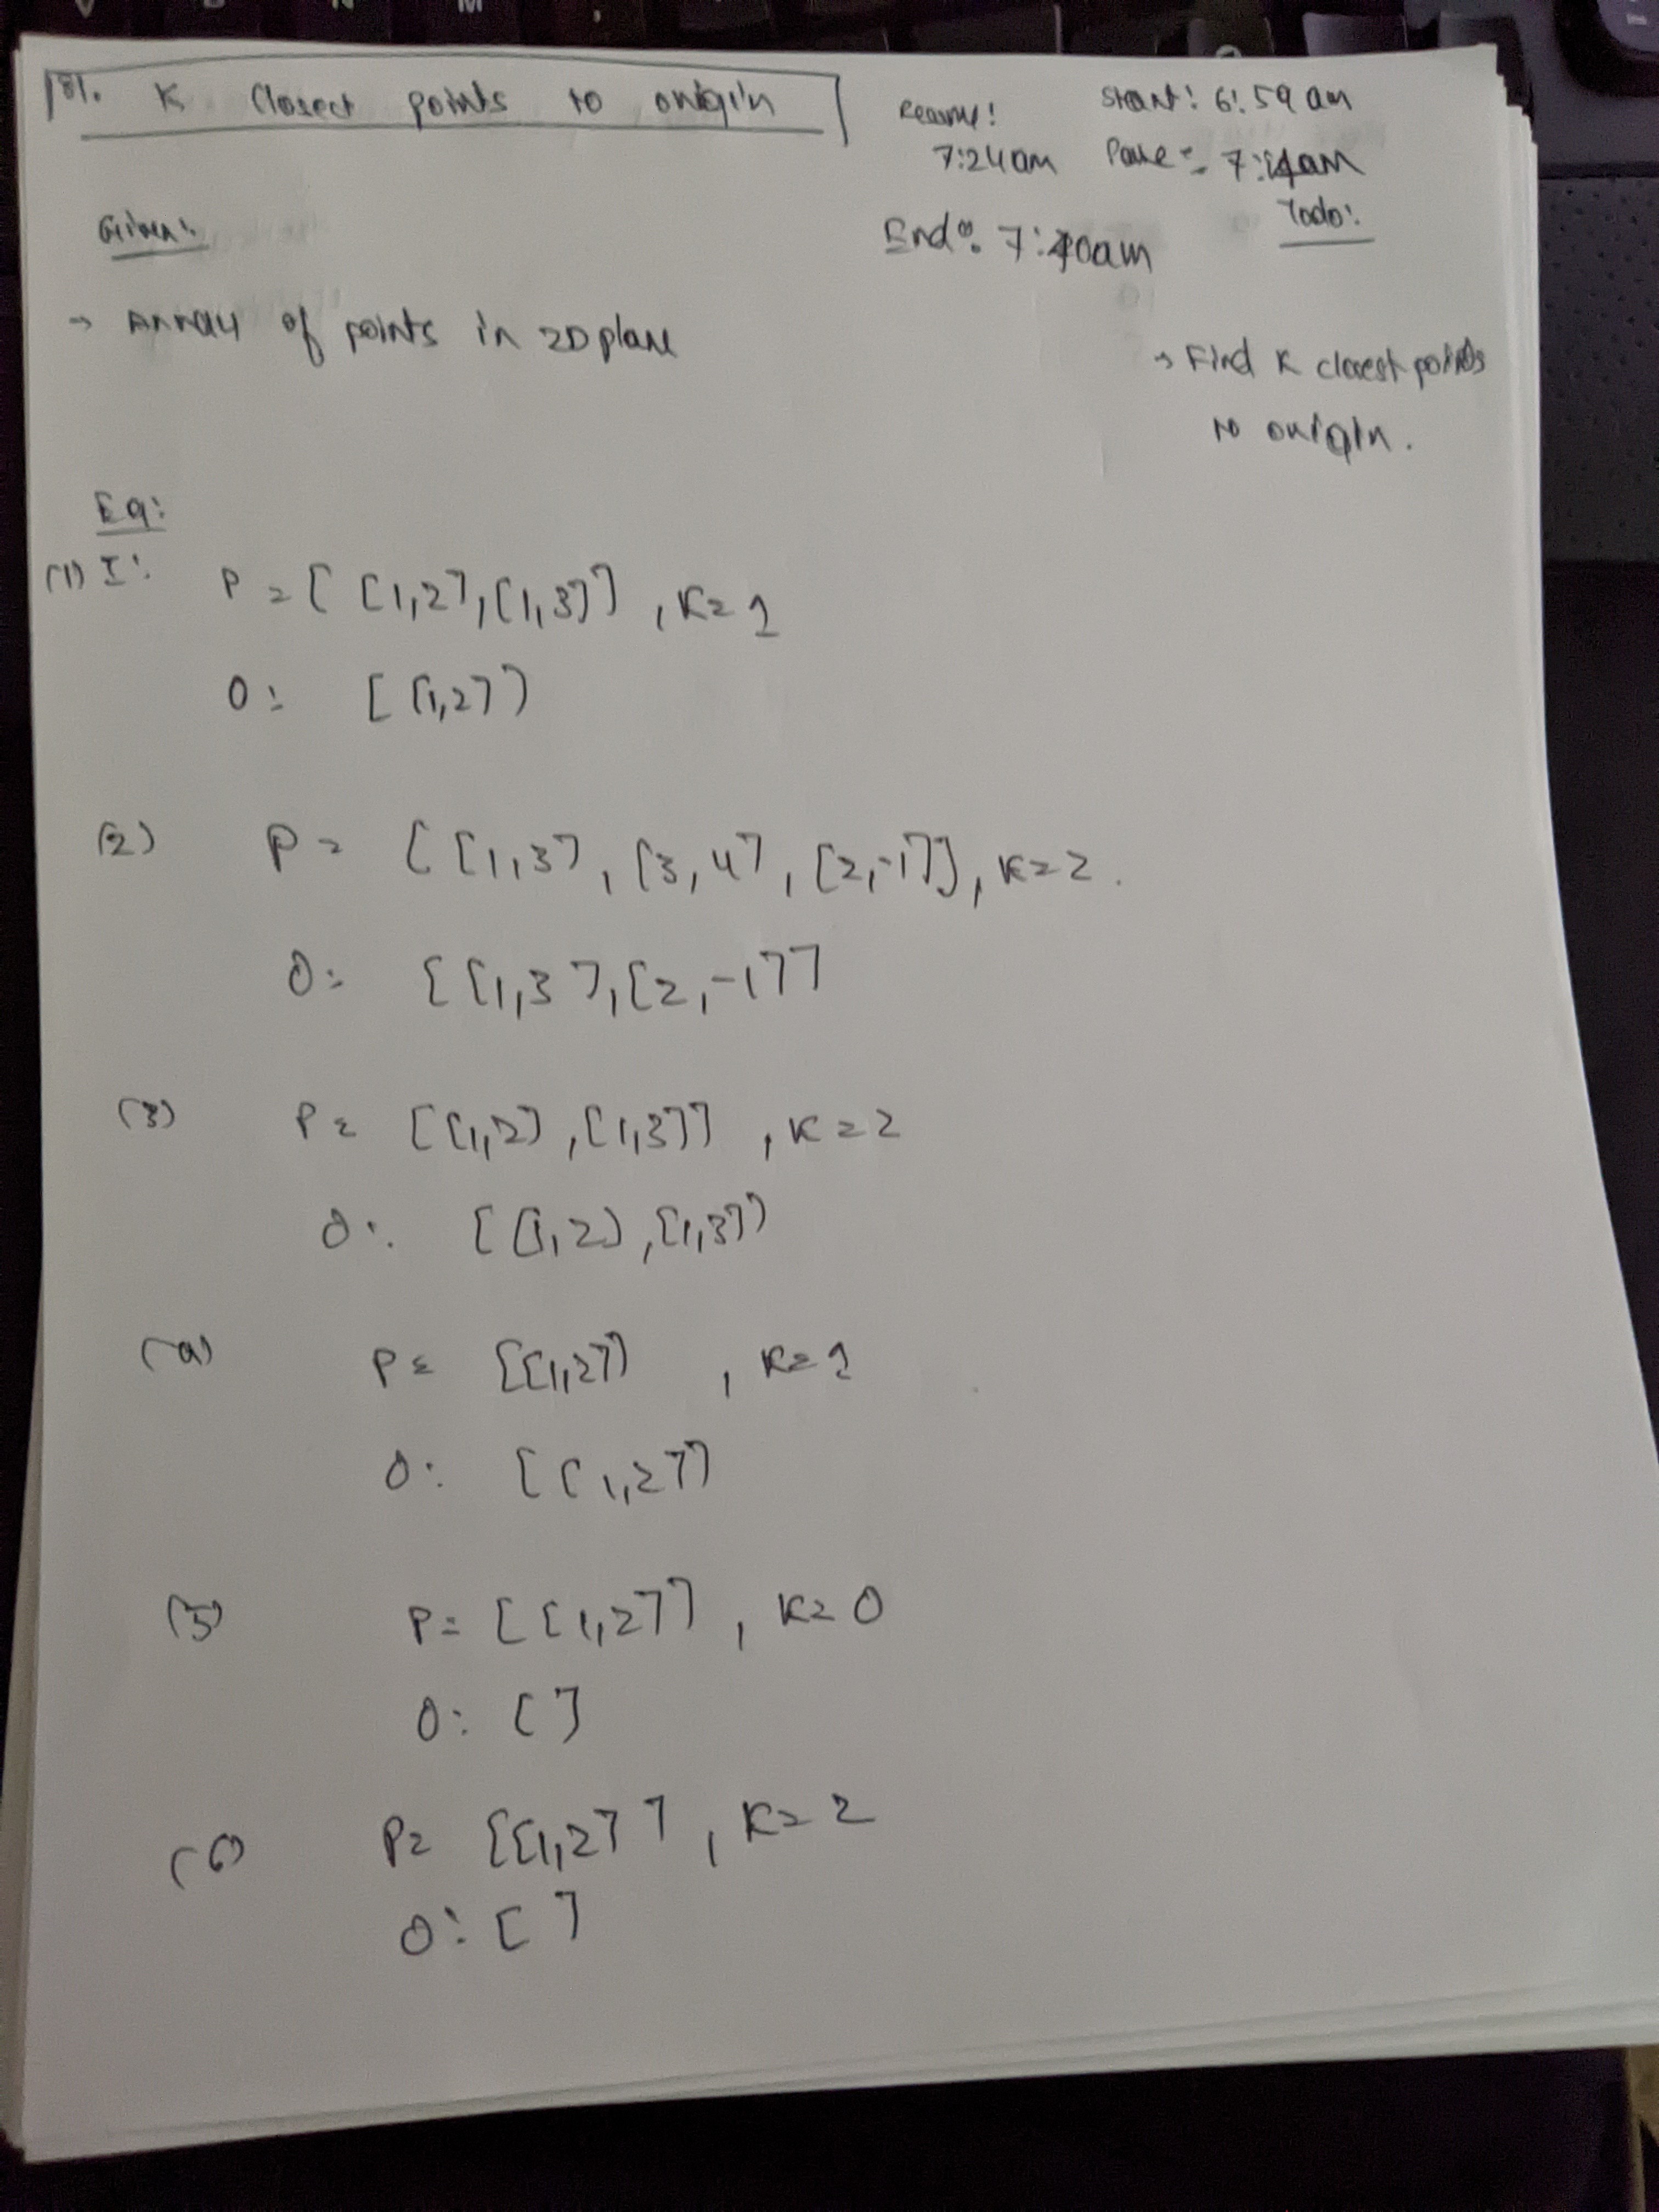 181. K Closest points to origin
Resume:
7:24am
Start: 6:59 am
Pause: 7:14am
End: 7:40am
Given:
→ Array of points in 2D plane
Todo:
→ Find K closest points
to origin.
Eg:
(1) I: P = [[1,2],[1,3]], K=1
O: [[1,2]]
(2) P = [[1,3],[3,4],[2,-1]], K=2.
O: [[1,3],[2,-1]]
(3) P= [[1,2],[1,3]], K=2
O: [[1,2],[1,3]]
(4) P= [[1,2]], K=1
O: [[1,2]]
(5) P= [[1,2]], K=0
O: []
(6) P= [[1,2]], K=2
O: []